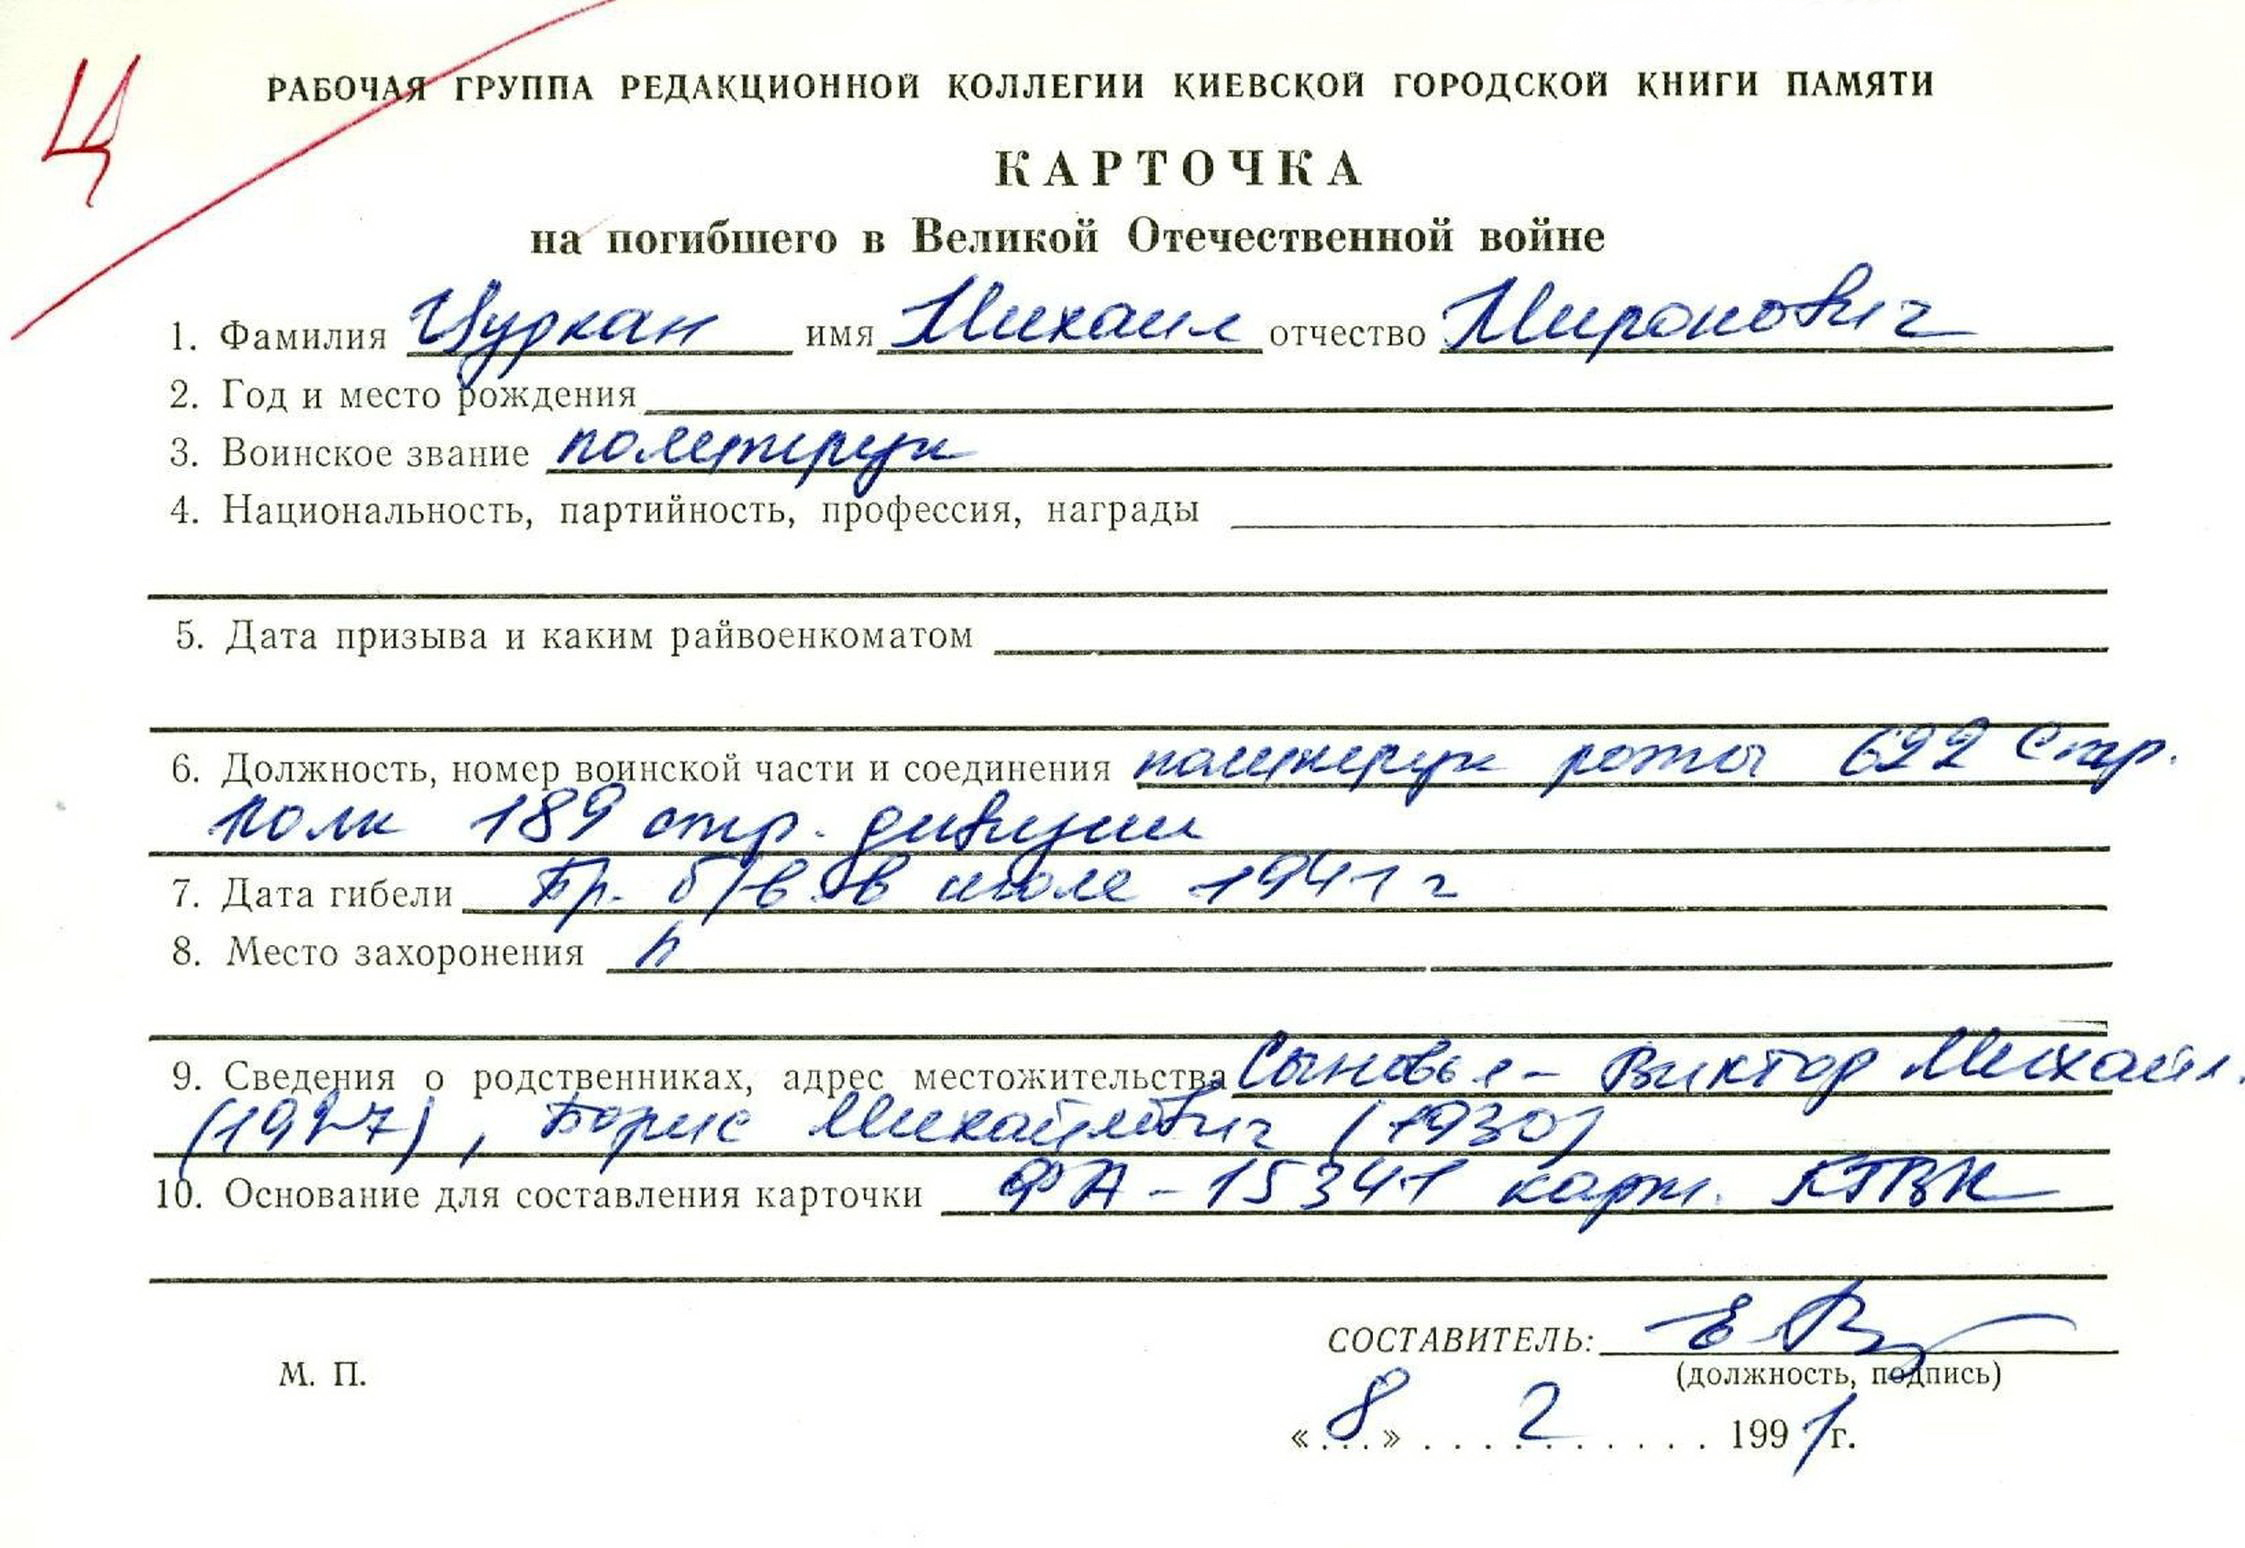 Ц
РАБОЧАЯ ГРУППА РЕДАКЦИОННОЙ КОЛЛЕГИИ КИЕВСКОЙ ГОРОДСКОЙ КНИГИ ПАМЯТИ
КАРТОЧКА
на погибшего в Великой Отечественной войне
1. Фамилия Цуркан имя Михаил отчество Миронович
2. Год и место рождения
3. Воинское звание политрук
4. Национальность, партийность, профессия, награды
5. Дата призыва и каким райвоенкоматом
6. Должность, номер воинской части и соединения политрук роты 622 стр.
полк 189 стр. дивизии
7. Дата гибели Пр. б/в. в июле 1941 г
8. Место захоронения
9. Сведения о родственниках, адрес местожительства Сыновья - Виктор Михайл.
(1927), Борис Михайлович (1930)
10. Основание для составления карточки ФА-15341 карт. КГВК
СОСТАВИТЕЛЬ:
(должность, подпись)
М. П.
«8» 2 1991г.